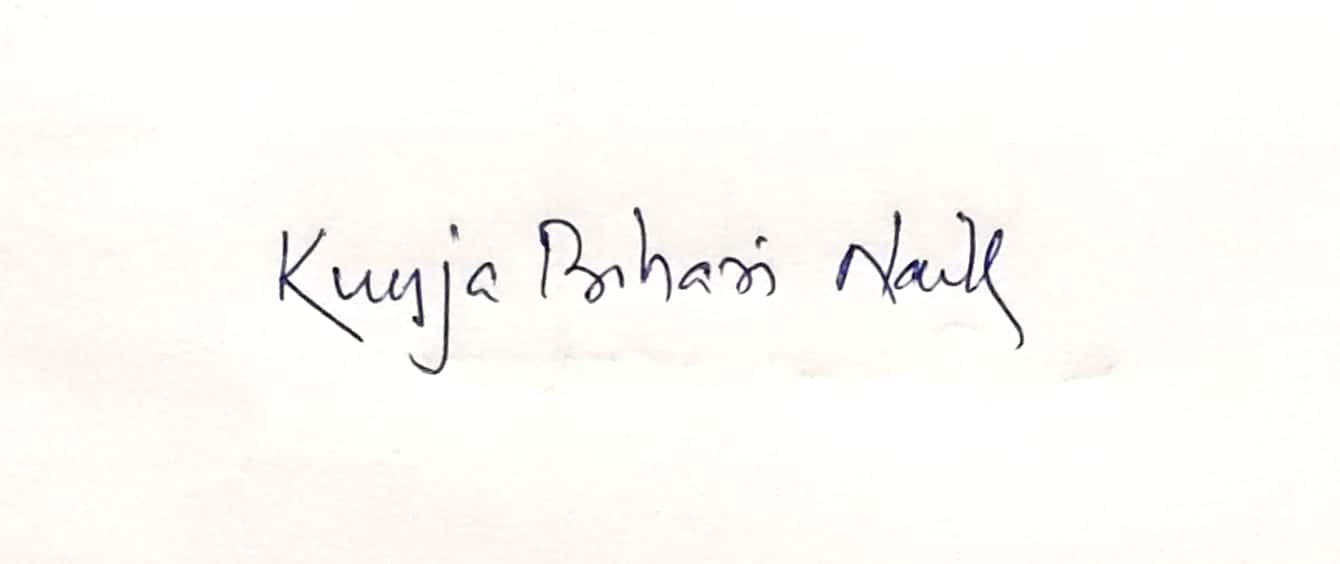 Kunja Bihari Naik